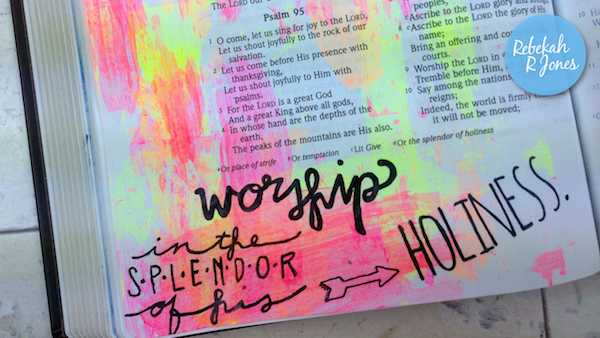 The LORD our
Psalm 95
1 O come, let us sing for joy to the LORD,
Let us shout joyfully to the rock of our
salvation.
2 Let us come before His presence with
thanksgiving,
Let us shout joyfully to Him with
psalms.
3 For the LORD is a great God
And a great King above all gods,
4 In whose hand are the depths of the
earth,
The peaks of the mountains are His also.
ᵃOr place of strife ᵃOr temptation ᶜLit Give ᵃOr the splendor of holiness
peoples,
Ascribe to the LORD glory and
8 Ascribe to the LORD the glory of His
name;
Bring an offering and co
courts.
9 Worship the LORD in
Tremble before Him,
10 Say among the nations
reigns;
Indeed, the world is firmly
it will not be moved;
worship
in the
S·P·L·E·N·D·O·R
of his
HOLINESS.
Rebekah
R Jones